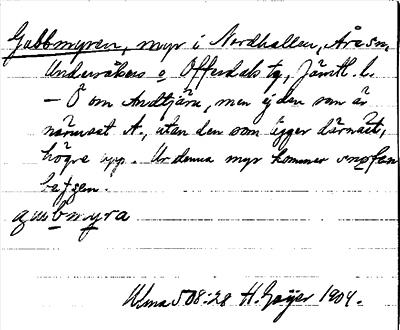 Gubbmyren, myr i Nordhallen, Åre sn,
Undersåkers o Offerdals tg, Jämtl. l.
— Ö om Andtjärn, men ej den som är
närmast A., utan den som ligger därnäst,
högre upp. Ur denna myr kommer
gubmyra
Ulma 508:28 H. Geijer 1909.